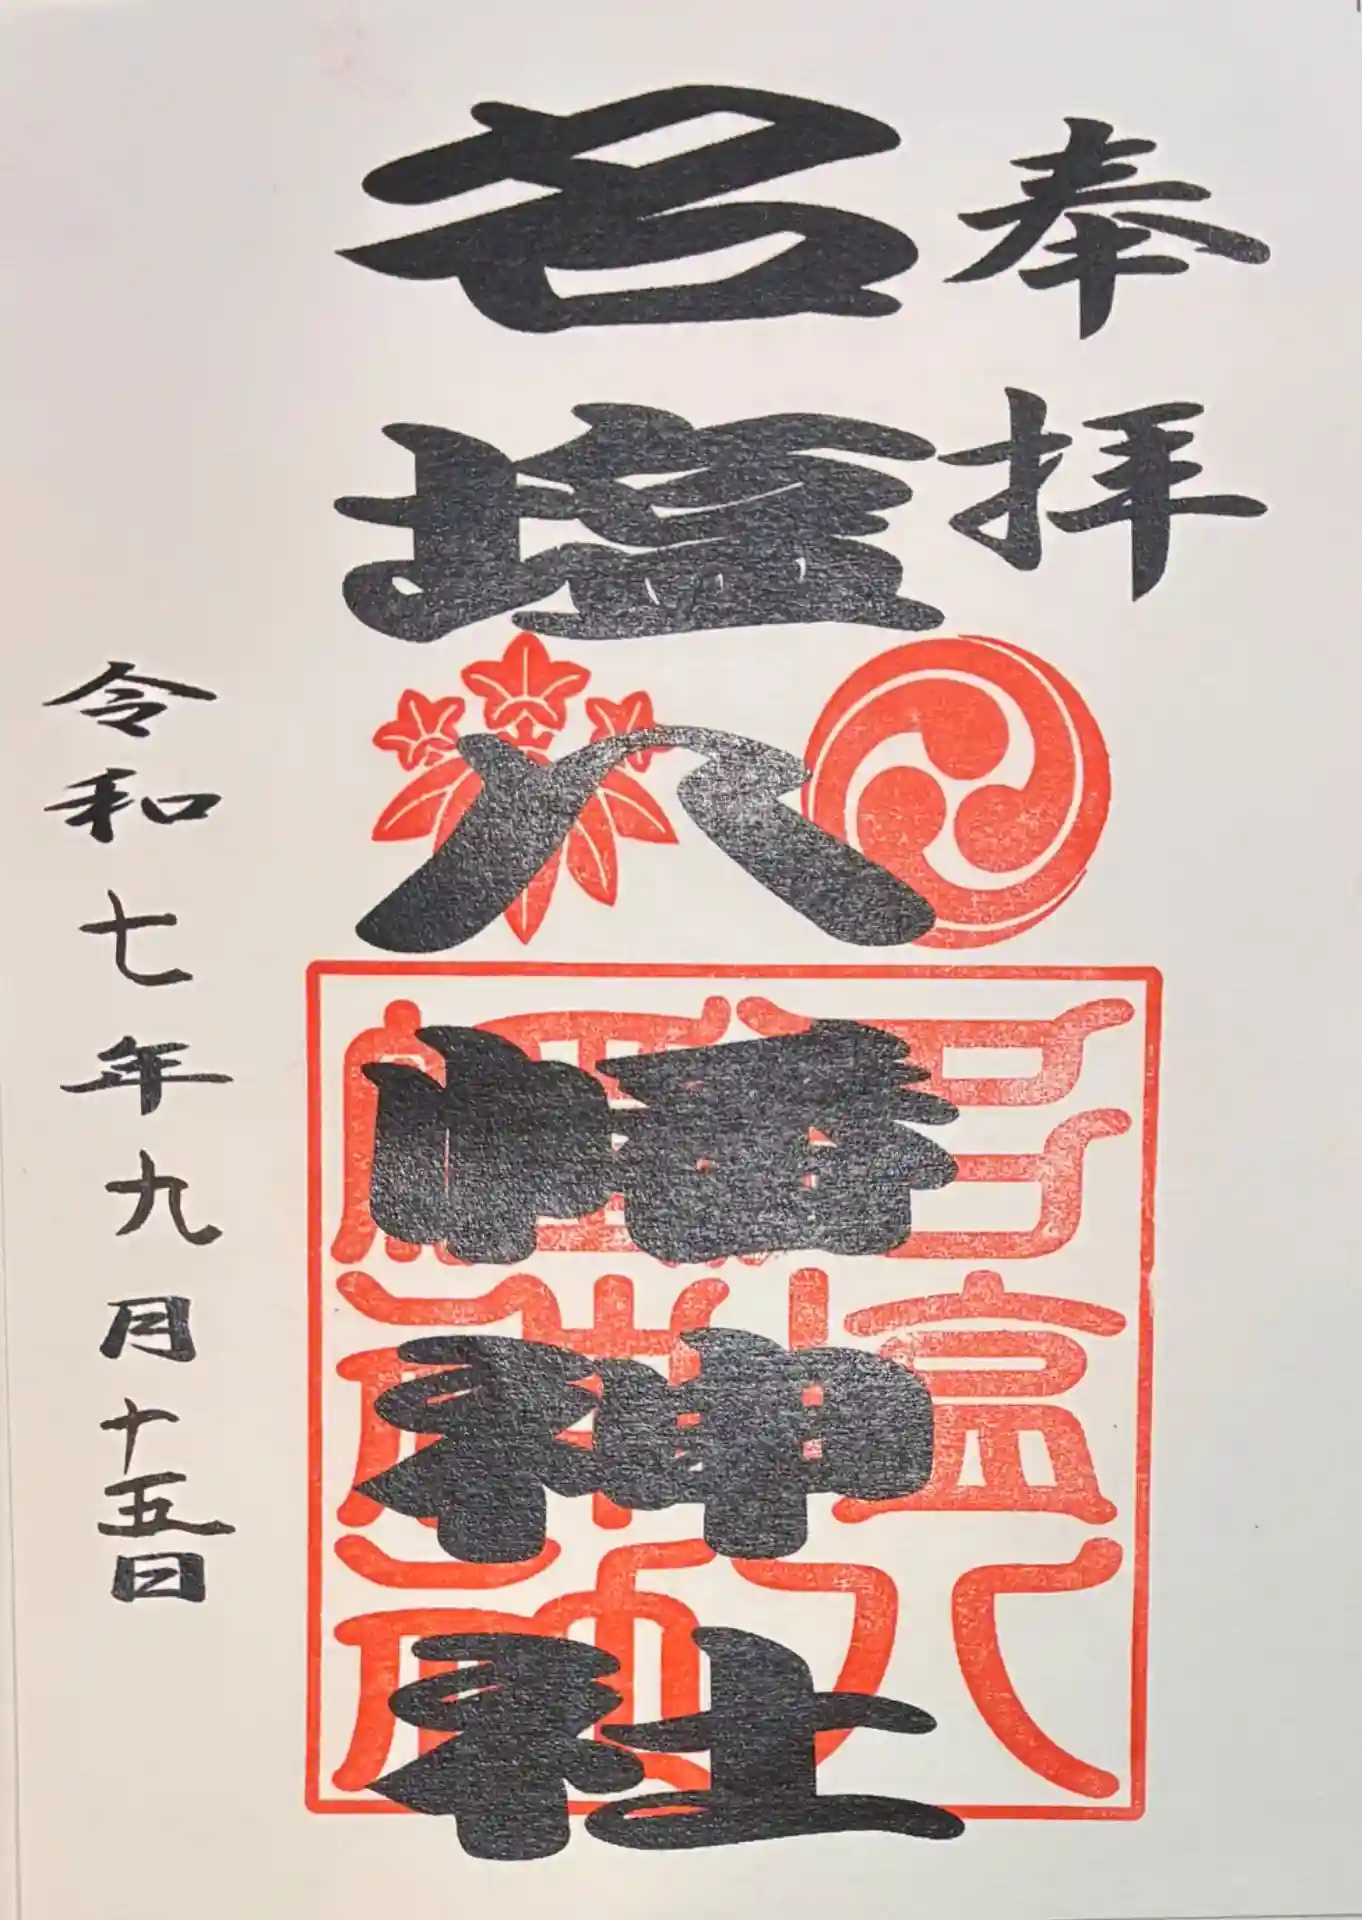 奉拝
名塩八幡神社
令和七年九月十五日